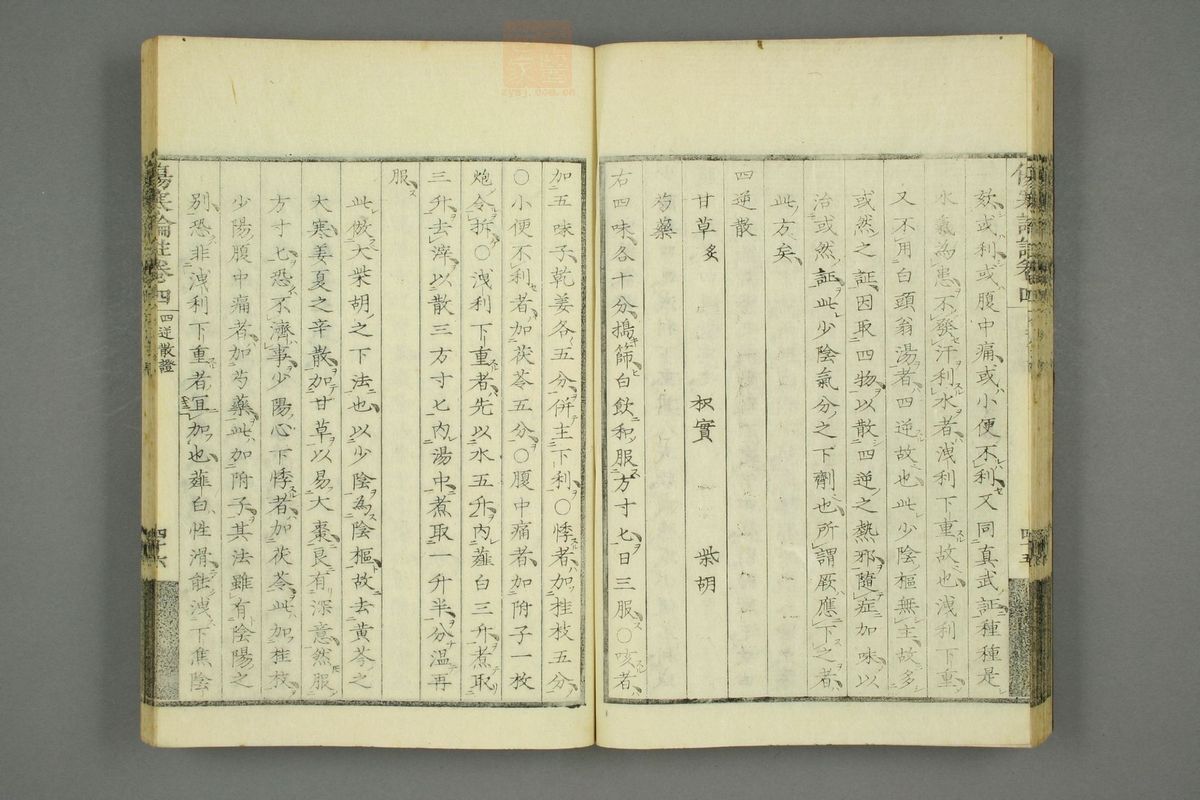 欬或利或腹中痛或小便不利又同真武証種種是
水氣為患不發汗利水者洩利下重故也洩利下重
又不用白頭翁湯者四逆故也此少陰樞無主故多
或然之証因取四物以散四逆之熱邪隨症加味以
治或然証此少陰氣分之下劑也所謂厥應下之者
此方矣
四逆散
甘草炙 枳實 柴胡
芍藥
右四味各十分搗篩白飲和服方寸匕日三服○咳者
四十五
加五味子乾姜各五分併主下利○悸者加桂枝五分
○小便不利者加茯苓五分○腹中痛者加附子一枚
炮令拆○洩利下重者先以水五升內薤白三升煮取
三升去滓以散三方寸匕內湯中煮取一升半分溫再
服
此倣大柴胡之下法也以少陰為陰樞故去黃芩之
大寒姜夏之辛散加甘草以易大棗良有深意然服
方寸匕恐不濟事少陽心下悸者加茯苓此加桂枝
少陽腹中痛者加芍藥此加附子其法雖有陰陽之
別恐非洩利下重者宜加也薤白性滑能洩下焦陰
傷寒論註卷四 四逆散證 四十六
zysj.com.cn